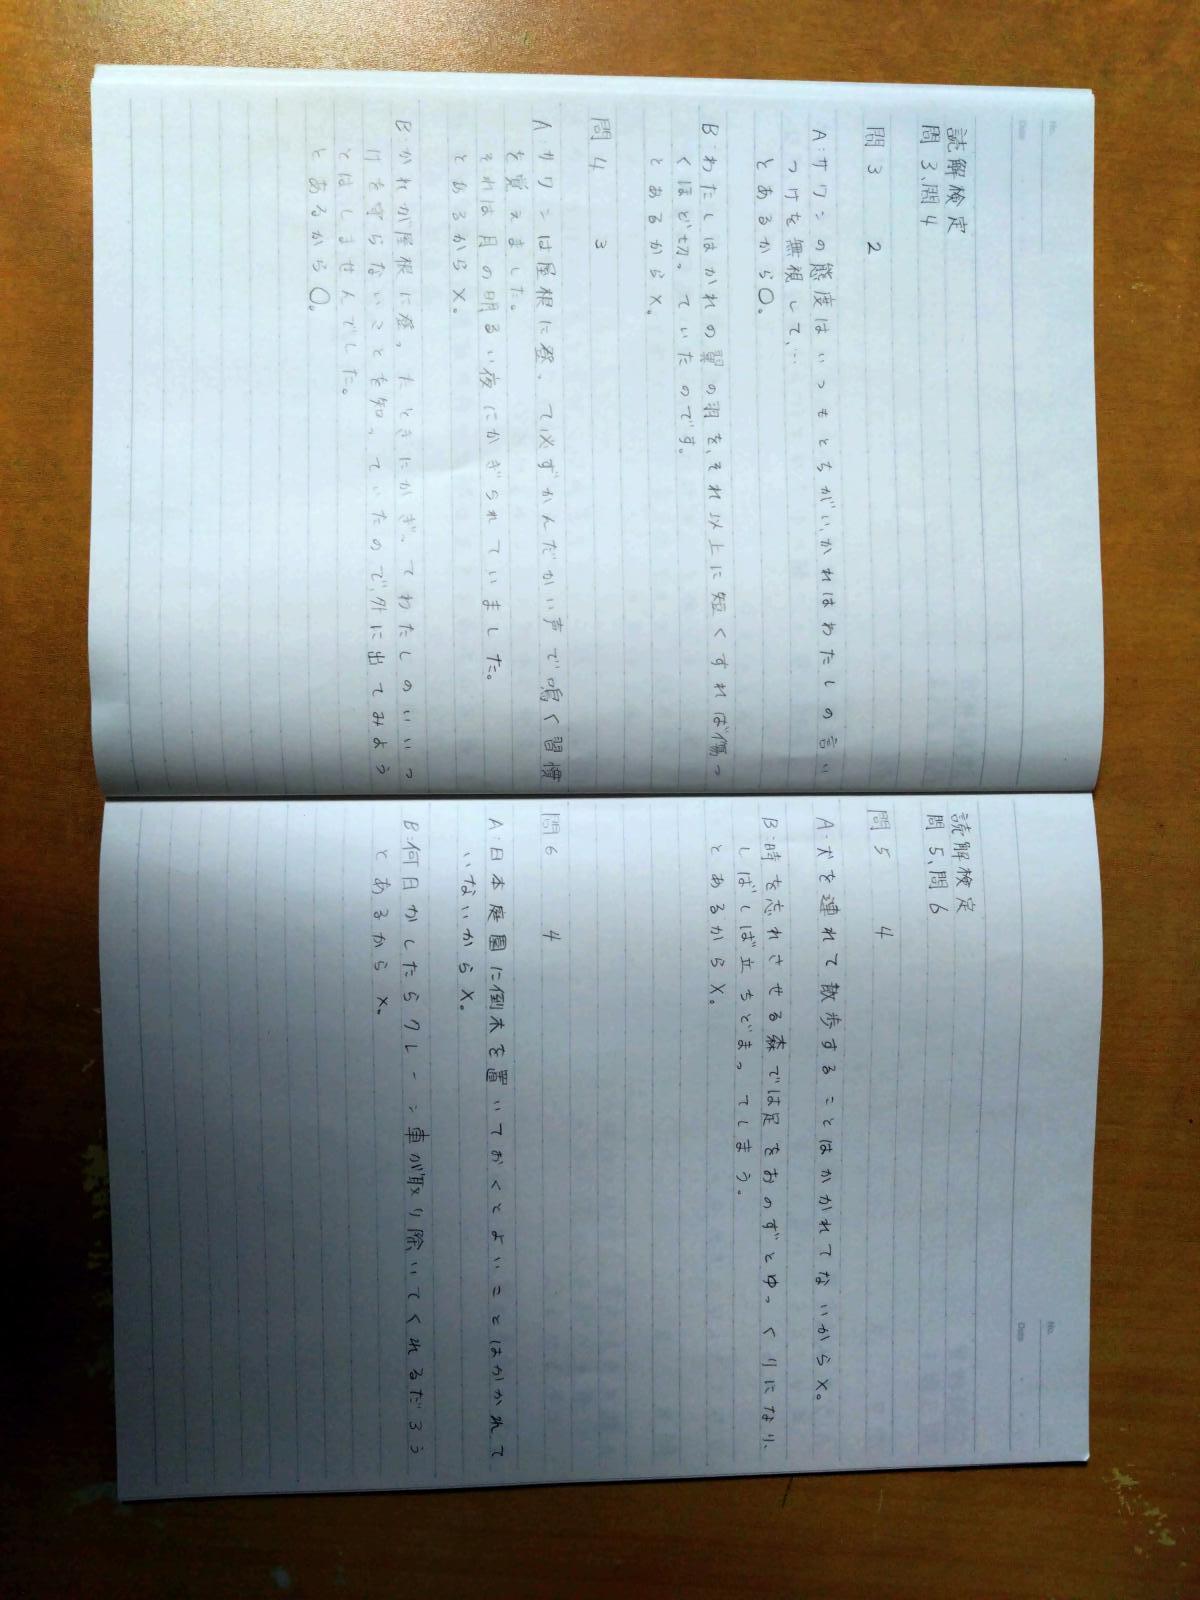 No.
Date
読解検定
問3、問4
問3 2
A:サワンの態度はいつもとちがいかれはわたしの言い
つけを無視して、…
とあるから○。
B:わたしはかれの翼の羽を、それ以上に短くすれば傷つ
くほど切っていたのです。
とあるから×。
問4 3
A:サワンは屋根に登って必ずかんだかい声で鳴く習慣
を覚えました。
それは月の明るい夜にかぎられていました。
とあるから×。
B:かれが屋根に登ったときにかぎってわたしのいいつ
けを守らないことを知っていたので、外に出てみよう
とはしませんでした。
とあるから○。
No.
Date
読解検定
問5、問6
問5 4
A:犬を連れて散歩することはかかれてないから×。
B:時を忘れさせる森では足をおのずとゆっくりになり、
しばしば立ちどまってしまう。
とあるから×。
問6 4
A:日本庭園に倒木を置いておくとよいことはかかれて
いないから×。
B:何日かしたらクレーン車が取り除いてくれるだろう
とあるから×。